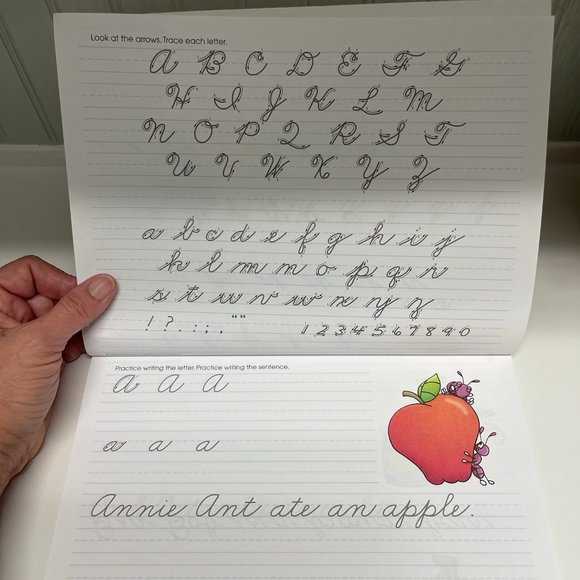 Look at the arrows. Trace each letter.
A B C D E F G
H I J K L M
N O P Q R S T
U V W X Y Z
a b c d e f g h i j
k l m n o p q r
s t u v w x y z
! ? . : ; , " "
1 2 3 4 5 6 7 8 9 0
Practice writing the letter. Practice writing the sentence.
A A A
a a a
Annie Ant ate an apple.